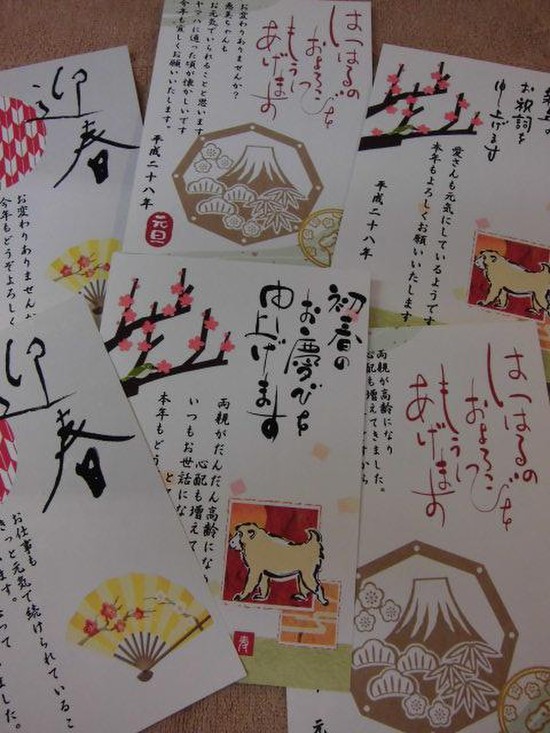 迎春
お変わりありませんか
今年もどうぞよろしく
はつはるの
およろこびを
もうし
あげます
お変わりありませんか?
恵美ちゃんも
お元気でいられることと思います
ヤマハに通った頃が懐かしいです
今年も宜しくお願いいたします。
平成二十八年
元旦
お祝詞を
申し上げます
愛さんも元気にしているようです
本年もよろしくお願いいたします
平成二十八年
迎春
お仕事も
きっと元気で続けられているこ
初春の
お慶びを
申し上げます
両親がだんだん高齢になり
心配も増えて
いつもお世話にな
本年もどう
寿
はつはるの
およろこびを
もうし
あげます
両親が高齢になり
心配も増えてきました。
元